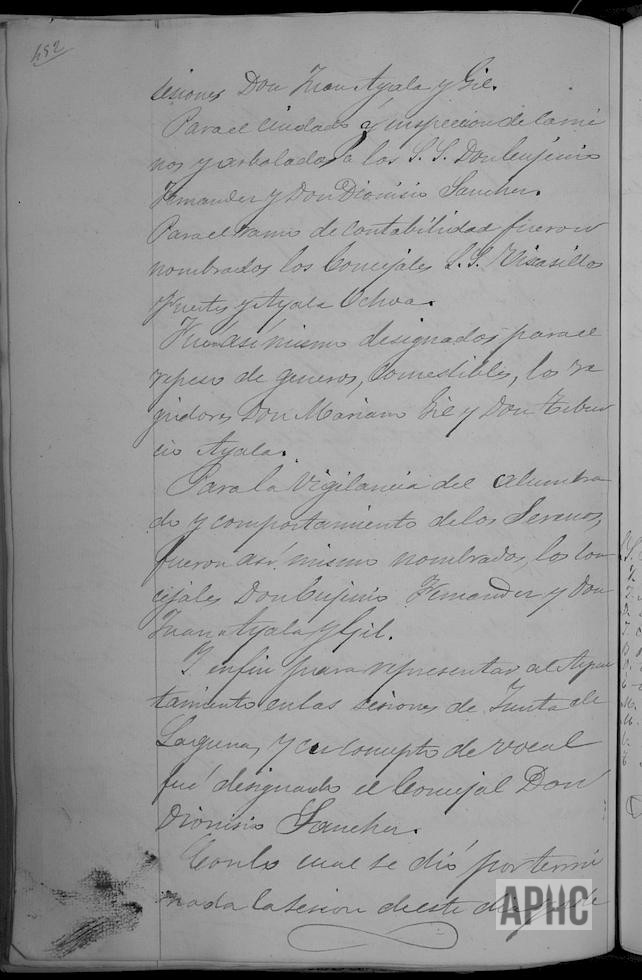 452
sesiones Don Juan Ayala y Gil.
Para el cuidado é inspeccion de cami
nos y arbolados a los S.S. Don Eugenio
Fernandez y Don Dionisio Sanchez.
Para el ramo de contabilidad fueron
nombrados los Concejales S.S. Rivasillos
Fuertes y Ayala Ochoa.
Fueron asi mismo designados para el
repeso de generos, comestibles, los re
gidores Don Mariano Gil y Don Tibur
cio Ayala.
Para la vigilancia del alumbra
do y comportamiento de los Serenos,
fueron asi mismo nombrados, los con
cejales Don Eugenio Fernandez y Don
Juan Ayala y Gil.
Y en fin para representar al Ayun
tamiento en las sesiones de Junta de
Laguna, y en concepto de vocal
fué designado el Concejal Don
Dionisio Sanchez.
Con lo cual se dió por termi
nada la sesion de este dia
APHC